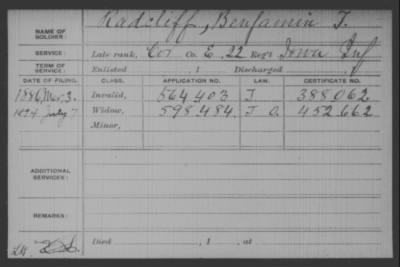 NAME OF SOLDIER: Radcliff, Benjamin F.
SERVICE: Late rank, Cor Co. E, 22 Reg't Iowa Inf
TERM OF SERVICE: Enlisted , 1 Discharged
DATE OF FILING. CLASS. APPLICATION NO. LAW. CERTIFICATE NO.
1886, Mar. 3. Invalid, 564 403 J 388 062
July 7 Widow, 598 484 J O. 452 662
Minor,
ADDITIONAL SERVICES:
REMARKS:
Died , 1 , at